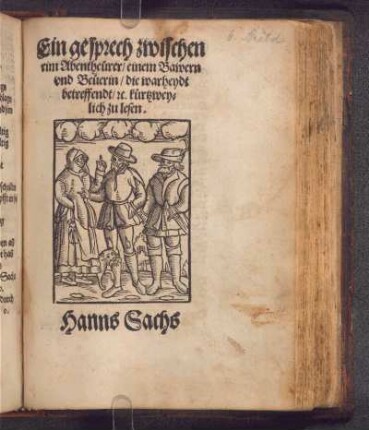 Ein gesprech zwischen
eim Abentheürer/ einem Bawern
vnd Beüerin/ die warheydt
betreffendt/ ꝛc. kürtzwey-
lich zu lesen.
Hanns Sachs